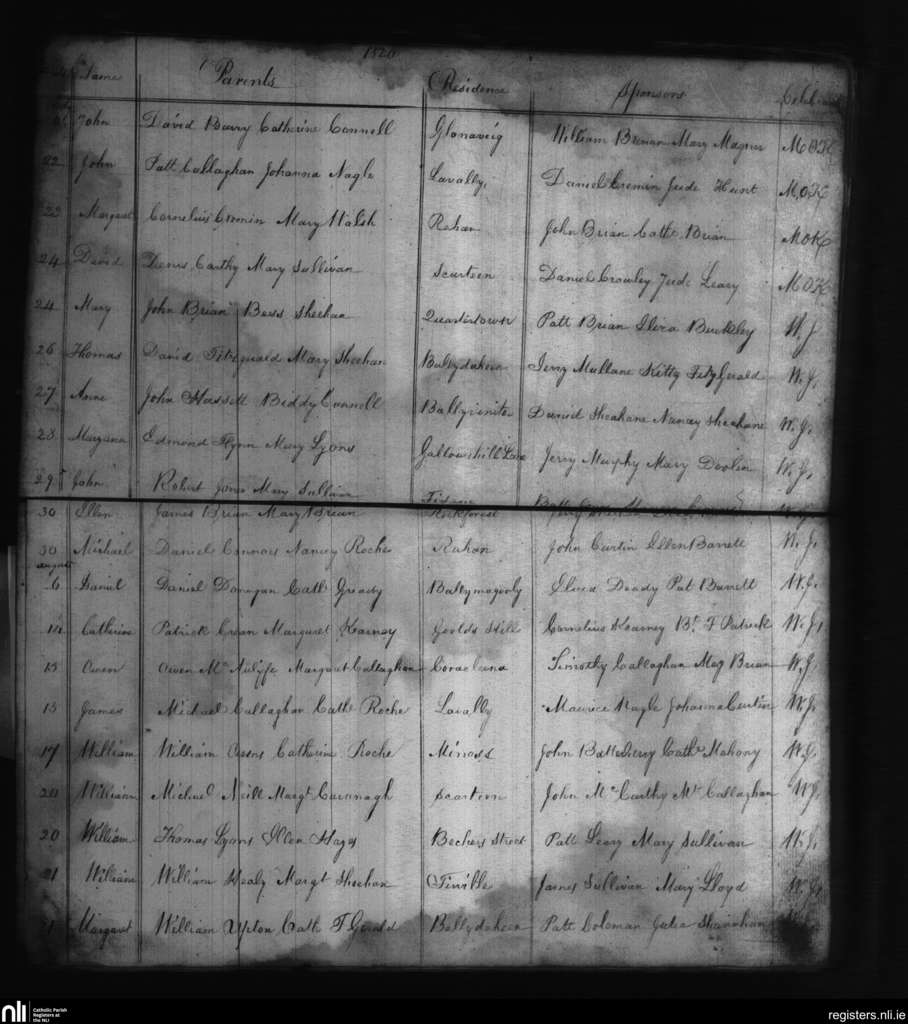 1820
Name Parents Residence Sponsors
John David Barry Catherine Connell Glanaveig William Mary Magner M.O.K
22 John Patt Callaghan Johanna Nagle Lavally, Daniel Cremin Jude Hunt M.O.K
23 Margaret Cornelius Cronin Mary Walsh Rahan John Brian Cath. Brian M.O.K
24 David Denis Carthy Mary Sullivan Scarteen Daniel Crowley Jude Leary M.O.K
24 Mary John Brian Bess Sheehan Quartertown Patt Brian Buckley W.J.
26 Thomas David Fitzgerald Mary Sheehan Ballydaheen Jerry Mullane Kitty Fitzgerald W.J.
27 Anne John Hassett Biddy Connell Ballyviniter Daniel Sheahane Nancy Sheahane W.J.
28 Edmond Flynn Mary Lyons Gallowshill Lane Jerry Murphy Mary Devlin W.J.
29 John Robert Jones Mary Sullivan
30 Ellen James Brian Mary Brian Rockforest
30 Michael Daniel Connors Nancy Roche Rahan John Curtin Ellen Barrett W.J.
August
6 Daniel Daniel Donegan Cath Greedy Ballymagooly Deady Pat Barrett W.J.
Catherine Patrick Crean Margaret Kearney Goolds Hill Cornelius Kearney Bt. F Patrick W.J.
15 Owen Owen Mc Auliffe Margaret Callaghan Timothy Callaghan Meg Brian W.J.
15 James Michael Callaghan Cath Roche Lavally Maurice Nagle Johanna Curtin W.J.
17 William William Owens Catherine Roche John Cath. Mahony W.J.
20 William Michael Neill Margt Cavanagh Scarteen John Mc Carthy Mt. Callaghan W.J.
20 William Thomas Lyons Ellen Hayes Bechers Street Patt Leary Mary Sullivan W.J.
21 William William Healy Margt Sheehan James Sullivan Mary Lloyd W.J.
21 Margaret William Upton Cath F Gerald Ballydaheen Patt Coleman Julia Shanahan
nli Catholic Parish
Registers at
the NLI
registers.nli.ie